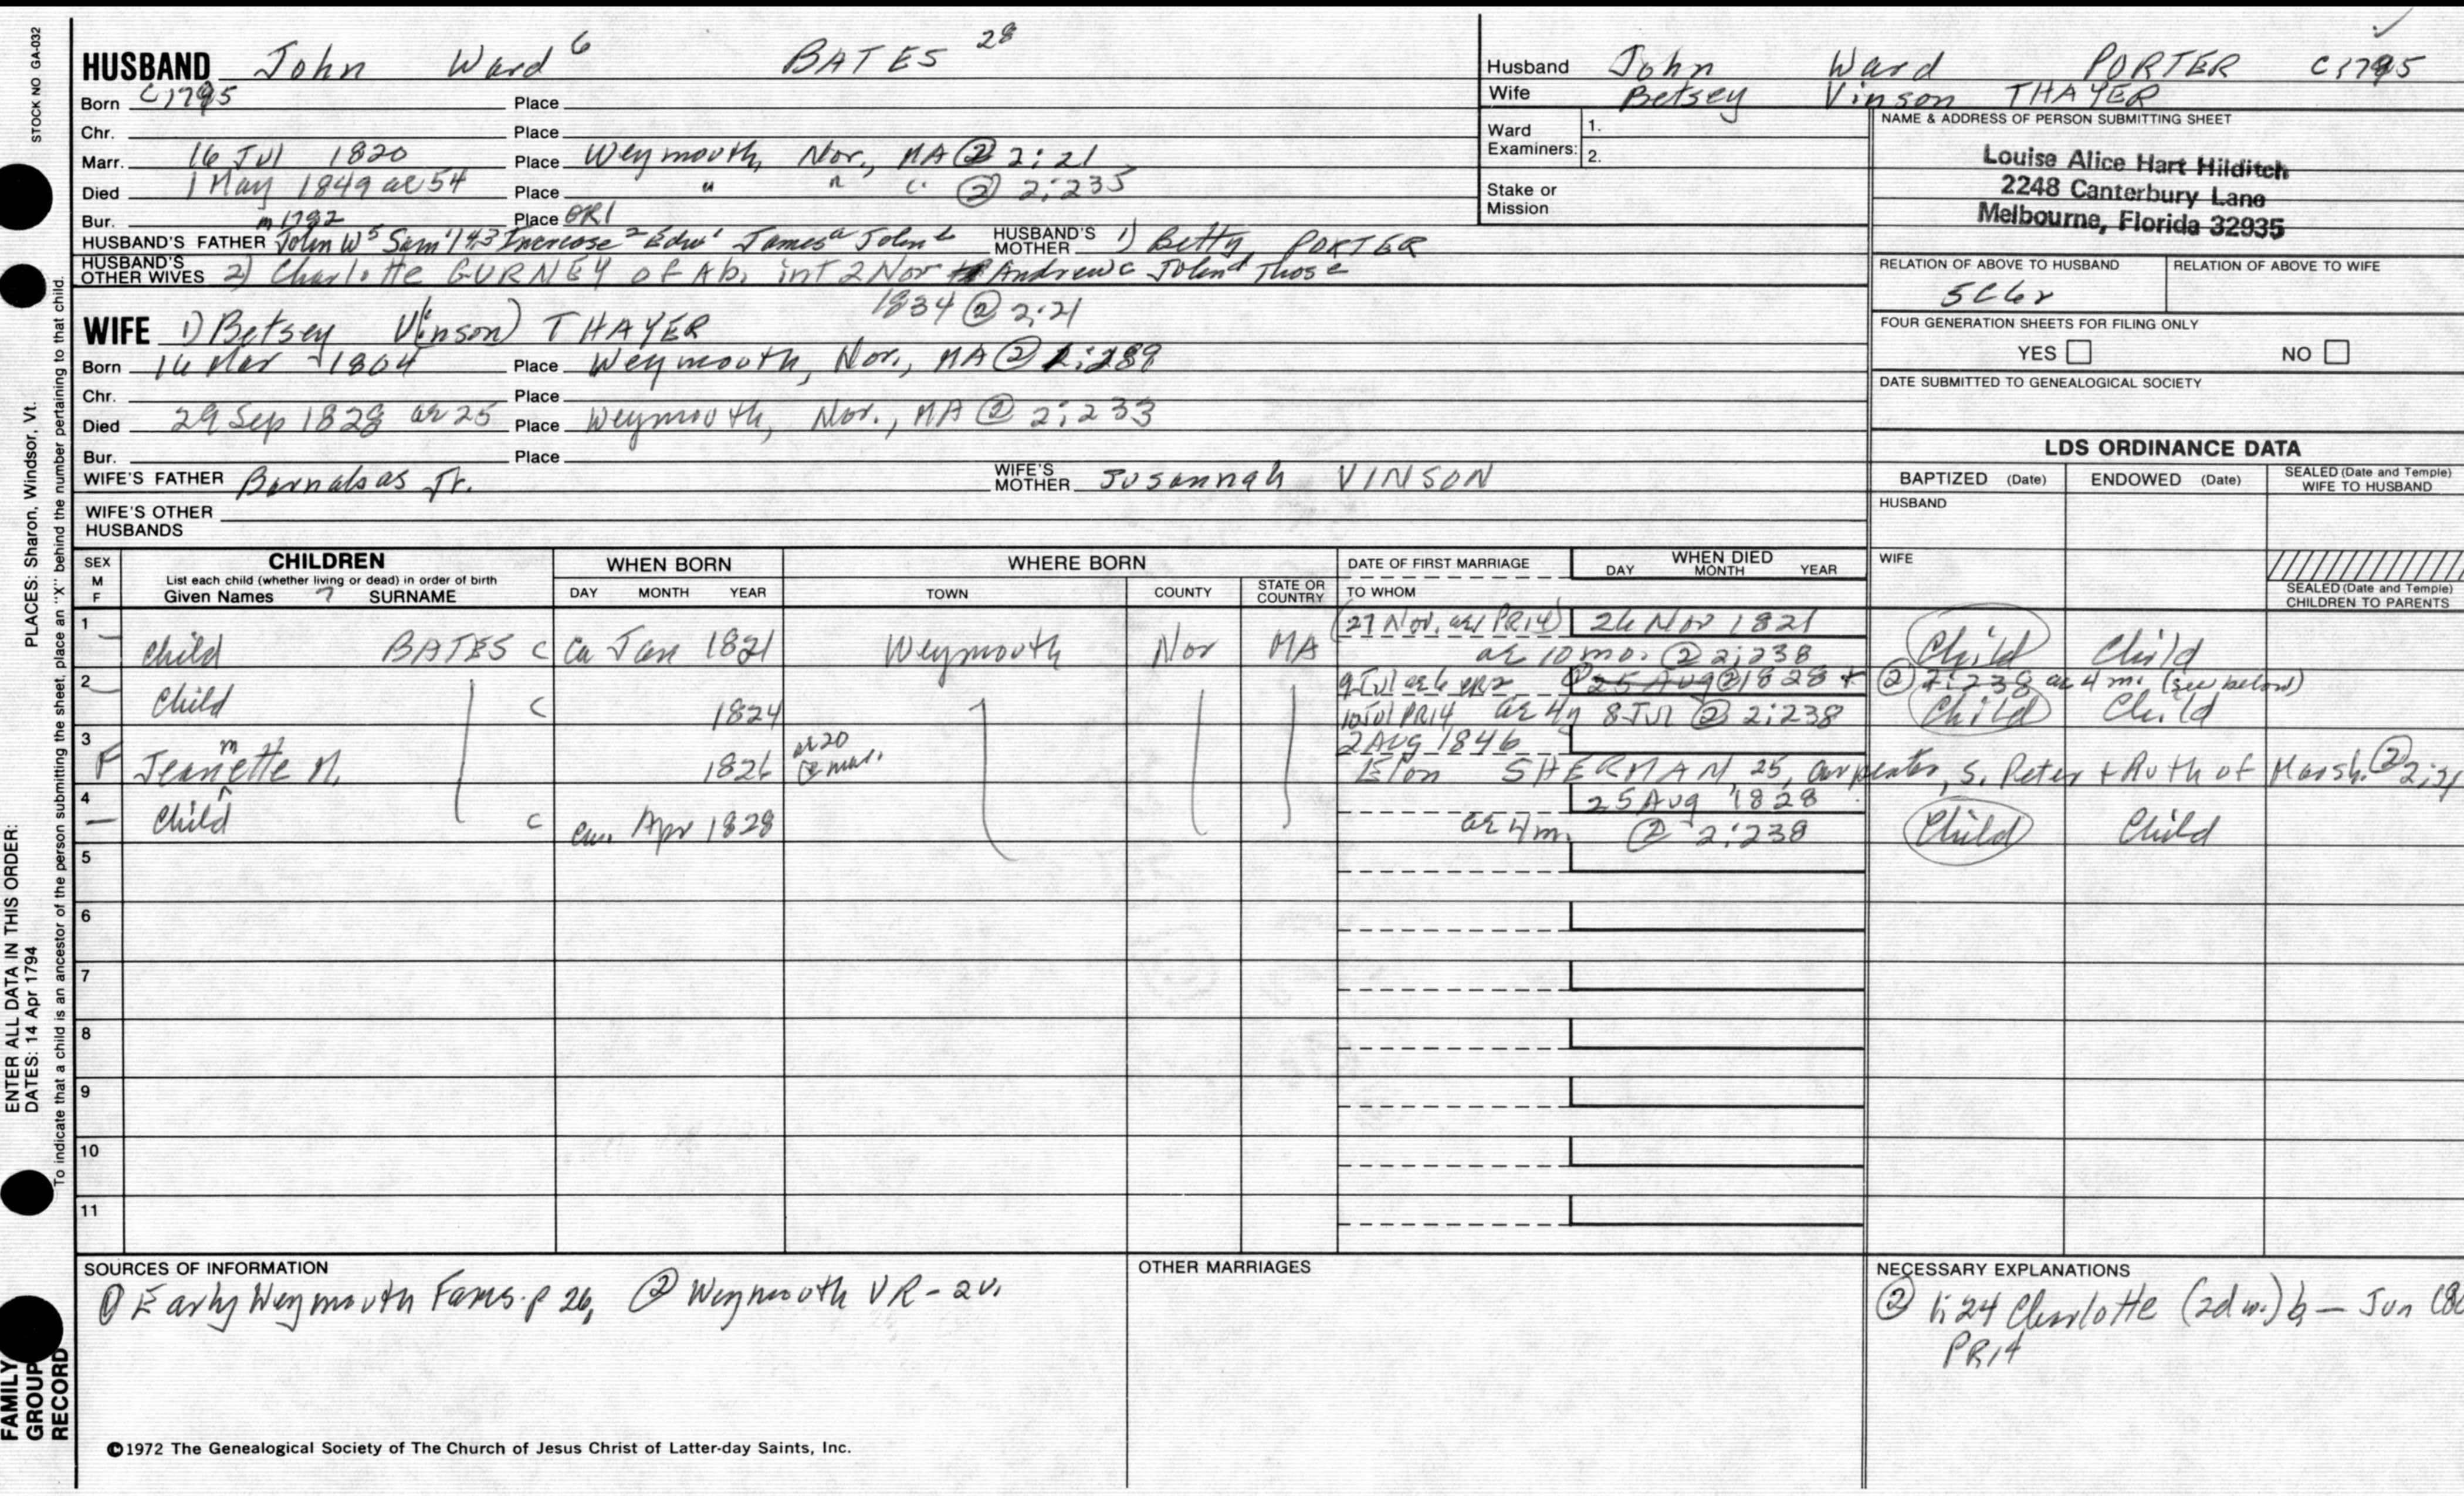 STOCK NO GA-032
PLACES: Sharon, Windsor, Vt.
ENTER ALL DATA IN THIS ORDER:
DATES: 14 Apr 1794
To indicate that a child is an ancestor of the person submitting the sheet, place an "X" behind the number pertaining to that child.
FAMILY GROUP RECORD
HUSBAND John Ward 6 BATES 28
Born c1795 Place
Chr. Place
Marr. 16 Jul 1820 Place Weymouth, Nor., MA @ 2:21
Died 1 May 1849 ae 54 Place " " " @ 2:235
Bur. m 1792 Place
HUSBAND'S FATHER John W5 Sam'l 4 3 Increase 2 Edw1 James John HUSBAND'S MOTHER 1) Betty PORTER
HUSBAND'S OTHER WIVES 2) Charlotte GURNEY of Ab. int 2 Nor Andrew c John d Thos e
1834 @ 2:21
WIFE 1) Betsey V(inson) THAYER
Born 14 Mar 1804 Place Weymouth, Nor., MA @ 1:289
Chr. Place
Died 29 Sep 1828 ae 25 Place Weymouth, Nor., MA @ 2:233
Bur. Place
WIFE'S FATHER Barnabas Jr. WIFE'S MOTHER Susannah VINSON
WIFE'S OTHER HUSBANDS
Husband John Ward PORTER c1795
Wife Betsey Vinson THAYER
Ward Examiners: 1.
2.
Stake or Mission
NAME & ADDRESS OF PERSON SUBMITTING SHEET
Louise Alice Hart Hilditch
2248 Canterbury Lane
Melbourne, Florida 32935
RELATION OF ABOVE TO HUSBAND RELATION OF ABOVE TO WIFE
5C6r
FOUR GENERATION SHEETS FOR FILING ONLY
YES NO
DATE SUBMITTED TO GENEALOGICAL SOCIETY
LDS ORDINANCE DATA
BAPTIZED (Date) ENDOWED (Date) SEALED (Date and Temple) WIFE TO HUSBAND
HUSBAND
WIFE
SEALED (Date and Temple) CHILDREN TO PARENTS
SEX M F
CHILDREN
List each child (whether living or dead) in order of birth
Given Names 7 SURNAME
WHEN BORN
DAY MONTH YEAR
WHERE BORN
TOWN COUNTY STATE OR COUNTRY
DATE OF FIRST MARRIAGE
TO WHOM
WHEN DIED
DAY MONTH YEAR
1 (27 Nov. ae 1 PR14) 26 Nov 1821
child BATES c Ca Jan 1821 Weymouth Nor MA ae 10 mo. @ 2:238 Child Child
2 9 Jul ae 6 25 Aug @ 1828 + @ 2:238 ae 4 m. (see below)
Child c 1824 10 Jul PR14 ae 4y 8 Jul @ 2:238 Child Child
3 2 Aug 1846
F Jeanette M. 1826 ae 20 @ mar. SHERMAN, 25, carpenter, s. Peter + Ruth of Marsh. @ 2:21
4 25 Aug 1828
Child c Apr 1828 ae 4 m. @ 2:238 Child Child
5
6
7
8
9
10
11
SOURCES OF INFORMATION
① Early Weymouth Fams. p 26, ② Weymouth VR - 2v.
OTHER MARRIAGES
NECESSARY EXPLANATIONS
② 1:24 Charlotte (2d w.) b — Jun
PR14
©1972 The Genealogical Society of The Church of Jesus Christ of Latter-day Saints, Inc.